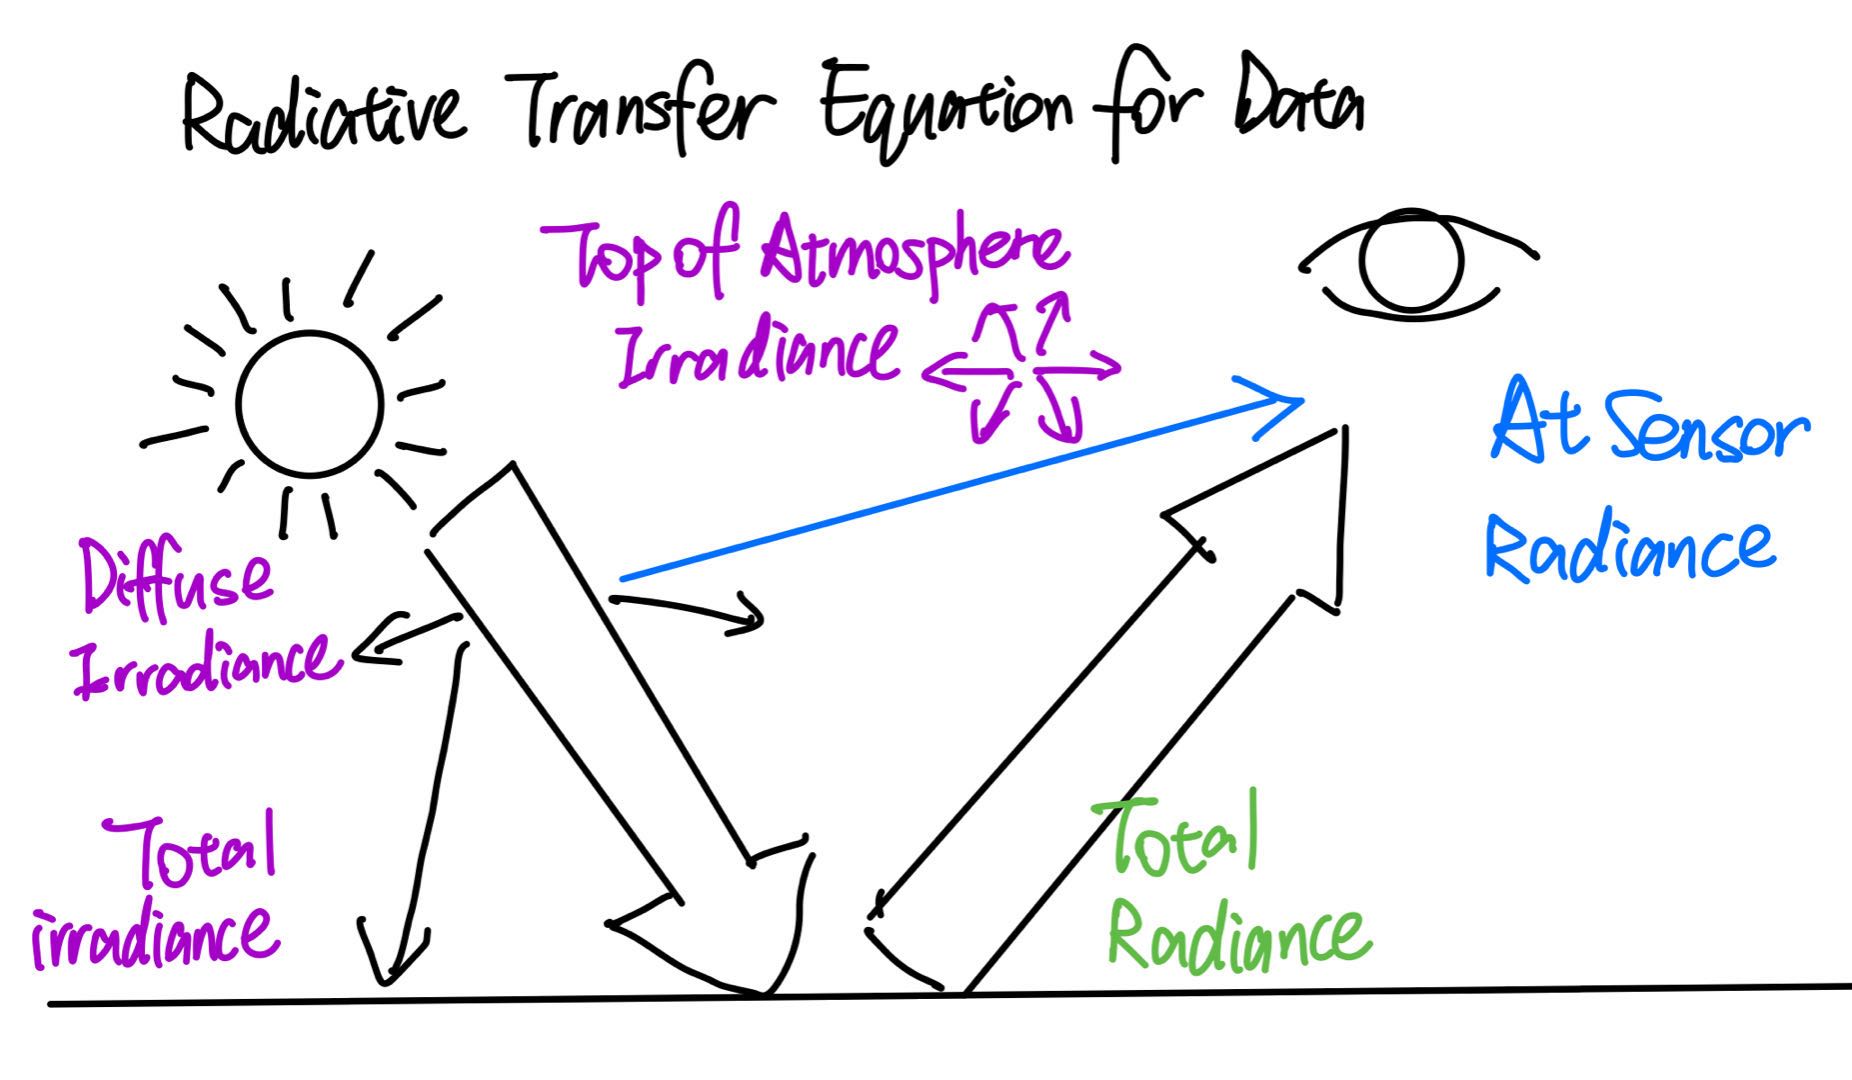 Radiative Transfer Equation for Data
Top of Atmosphere
Irradiance
At Sensor
Radiance
Diffuse
Irradiance
Total
irradiance
Total
Radiance